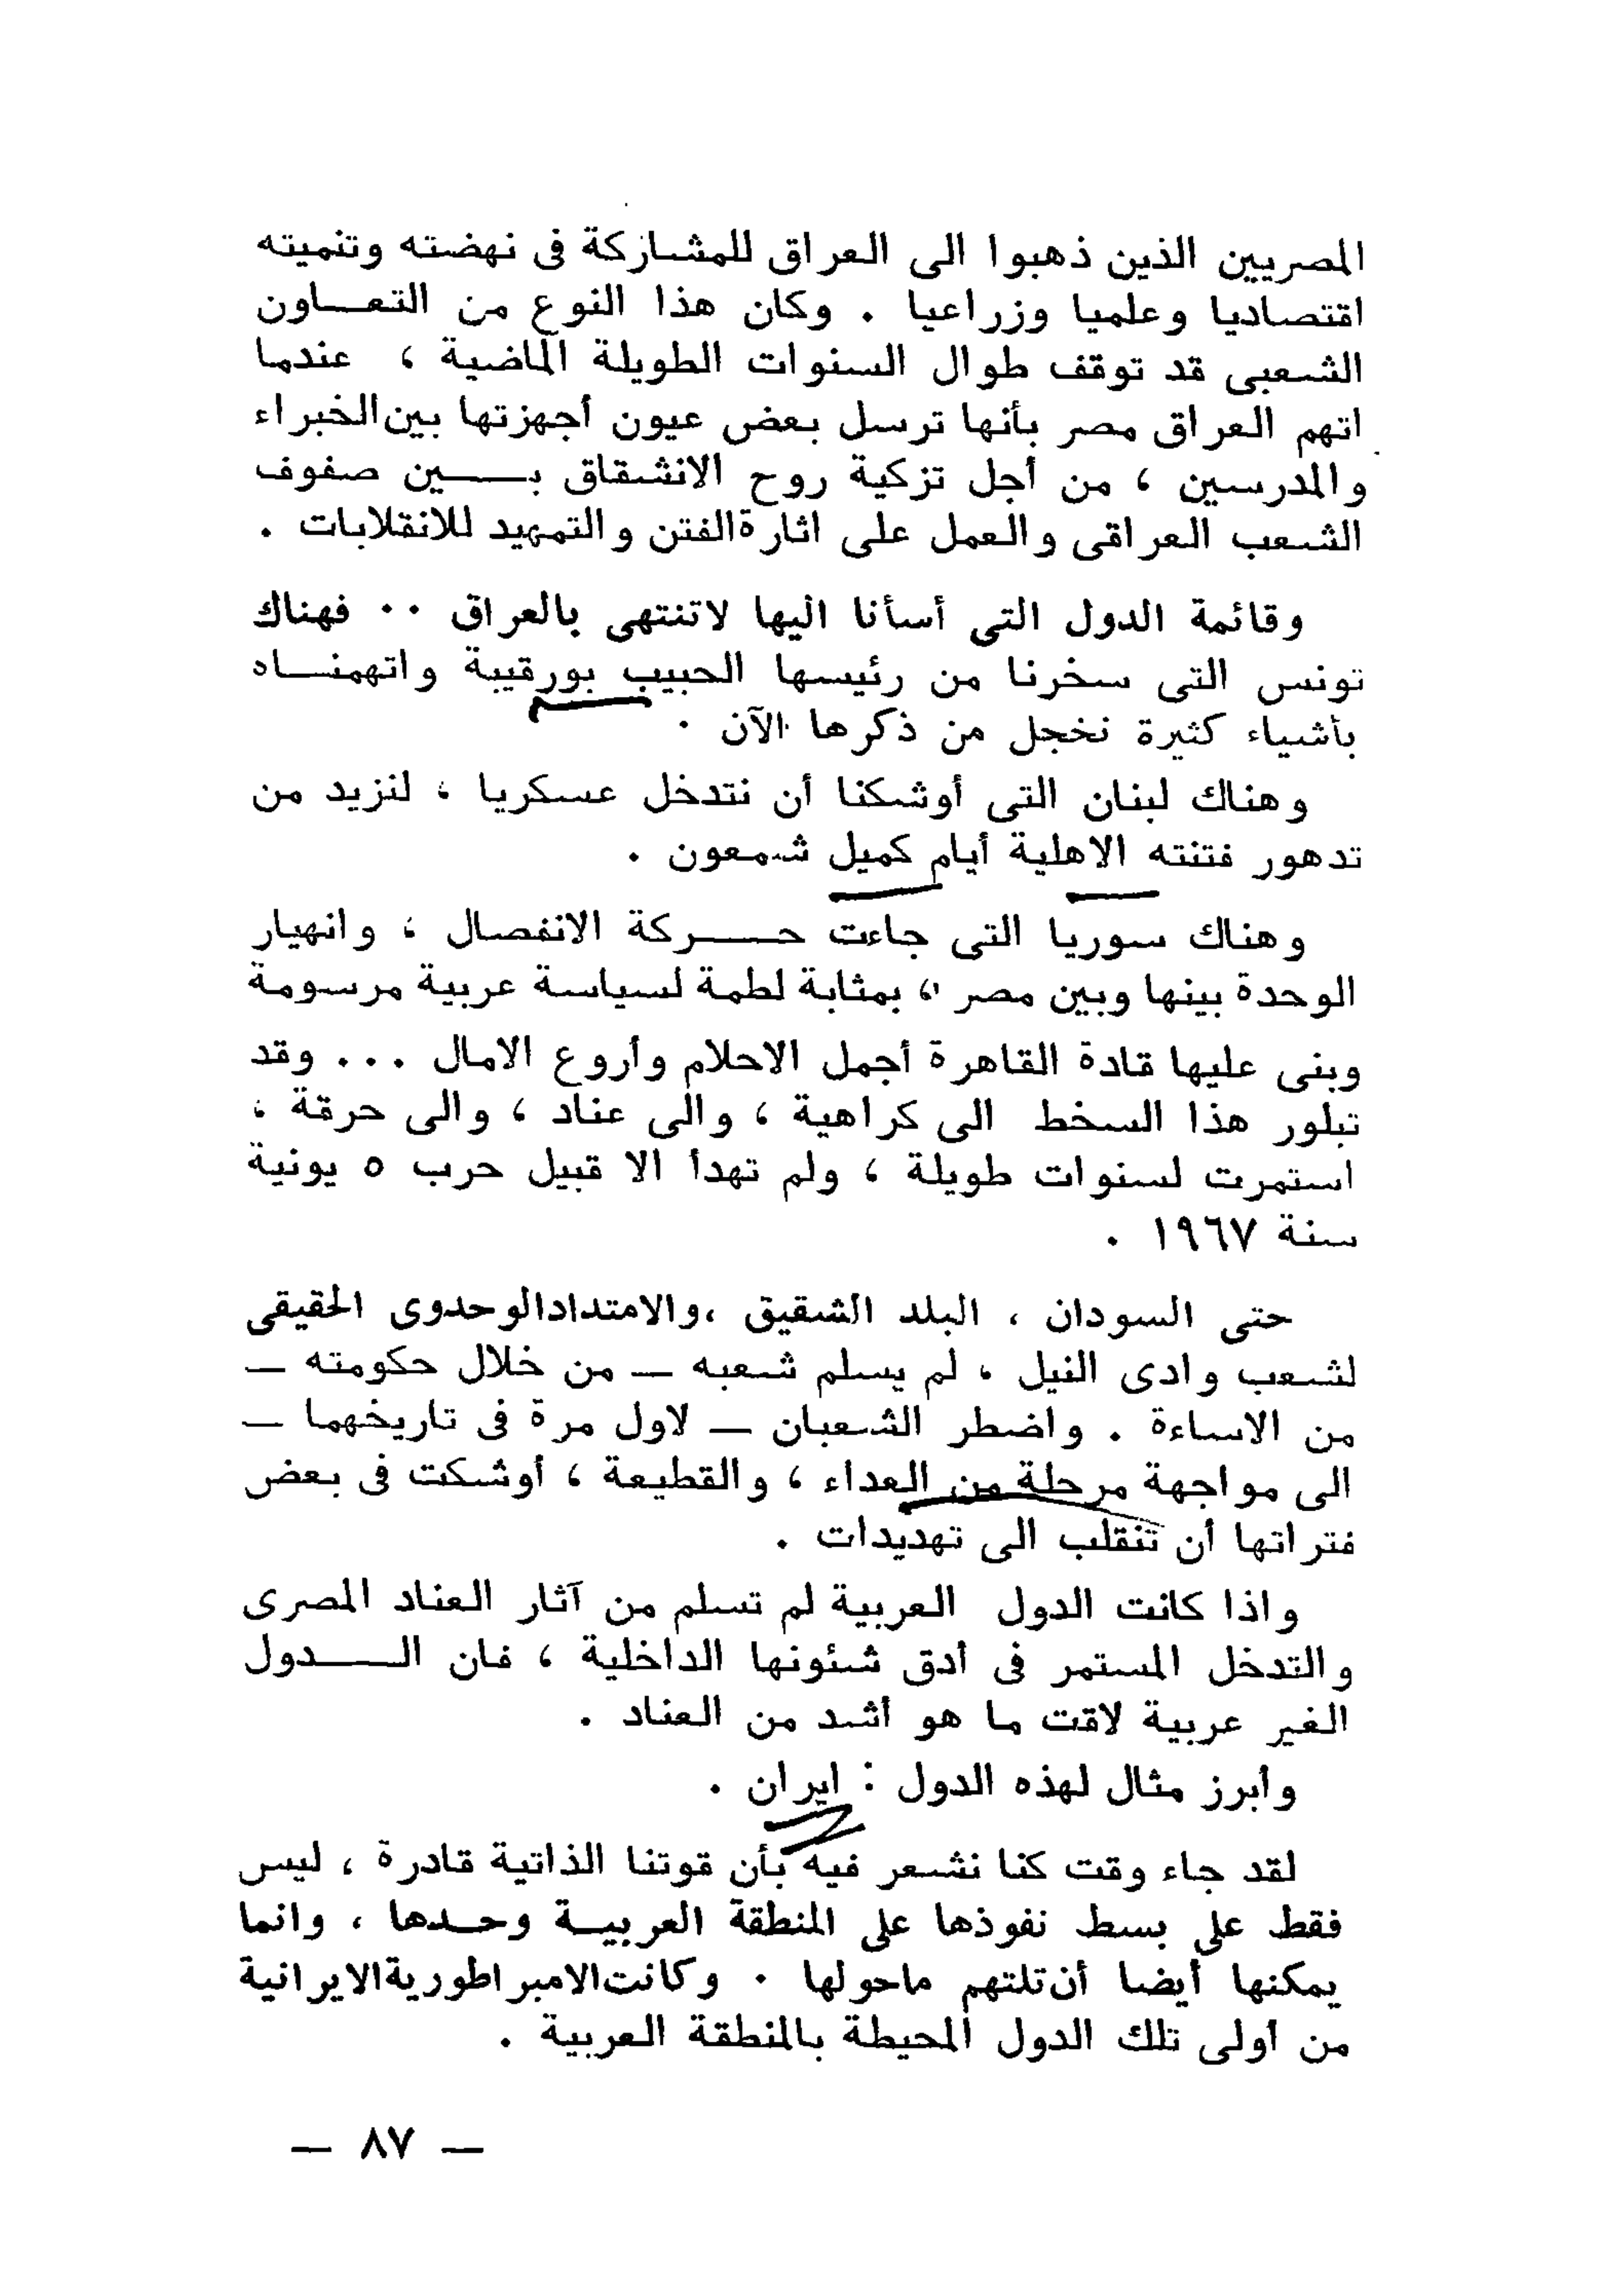 المصريين الذين ذهبوا الى العراق للمشاركة فى نهضته وتنميته
اقتصاديا وعلميا وزراعيا . وكان هذا النوع من التعـــاون
الشعبى قد توقف طوال السنوات الطويلة الماضية ، عندما
اتهم العراق مصر بأنها ترسل بعض عيون أجهزتها بين الخبراء
والمدرسين ، من أجل تزكية روح الانشقاق بـــــين صفوف
الشعب العراقى والعمل على اثارة الفتن والتمهيد للانقلابات .
وقائمة الدول التى أسأنا اليها لاتنتهى بالعراق ٠٠ فهناك
تونس التى سخرنا من رئيسها الحبيب بورقيبة واتهمنـــاه
بأشياء كثيرة نخجل من ذكرها الآن ٠
وهناك لبنان التى أوشكنا أن نتدخل عسكريا ، لنزيد من
تدهور فتنته الاهلية أيام كميل شمعون .
وهناك سوريا التى جاءت حـــــركة الانفصال ، وانهيار
الوحدة بينها وبين مصر ، بمثابة لطمة لسياسة عربية مرسومة
وبنى عليها قادة القاهرة أجمل الاحلام وأروع الامال ... وقد
تبلور هذا السخط الى كراهية ، والى عناد ، والى حرقة ،
استمرت لسنوات طويلة ، ولم تهدأ الا قبيل حرب ٥ يونية
سنة ١٩٦٧ .
حتى السودان ، البلد الشقيق ، والامتداد الوحدوى الحقيقى
لشعب وادى النيل ، لم يسلم شعبه — من خلال حكومته —
من الاساءة . واضطر الشعبان — لاول مرة فى تاريخهما —
الى مواجهة مرحلة من العداء ، والقطيعة ، أوشكت فى بعض
فتراتها أن تنقلب الى تهديدات .
واذا كانت الدول العربية لم تسلم من آثار العناد المصرى
والتدخل المستمر فى أدق شئونها الداخلية ، فان الـــــدول
الغير عربية لاقت ما هو أشد من العناد .
وأبرز مثال لهذه الدول : ايران .
لقد جاء وقت كنا نشعر فيه بأن قوتنا الذاتية قادرة ، ليس
فقط على بسط نفوذها على المنطقة العربيــة وحـدها ، وانما
يمكنها أيضا أن تلتهم ماحولها ٠ وكانت الامبراطورية الايرانية
من أولى تلك الدول المحيطة بالمنطقة العربية .
— ٨٧ —